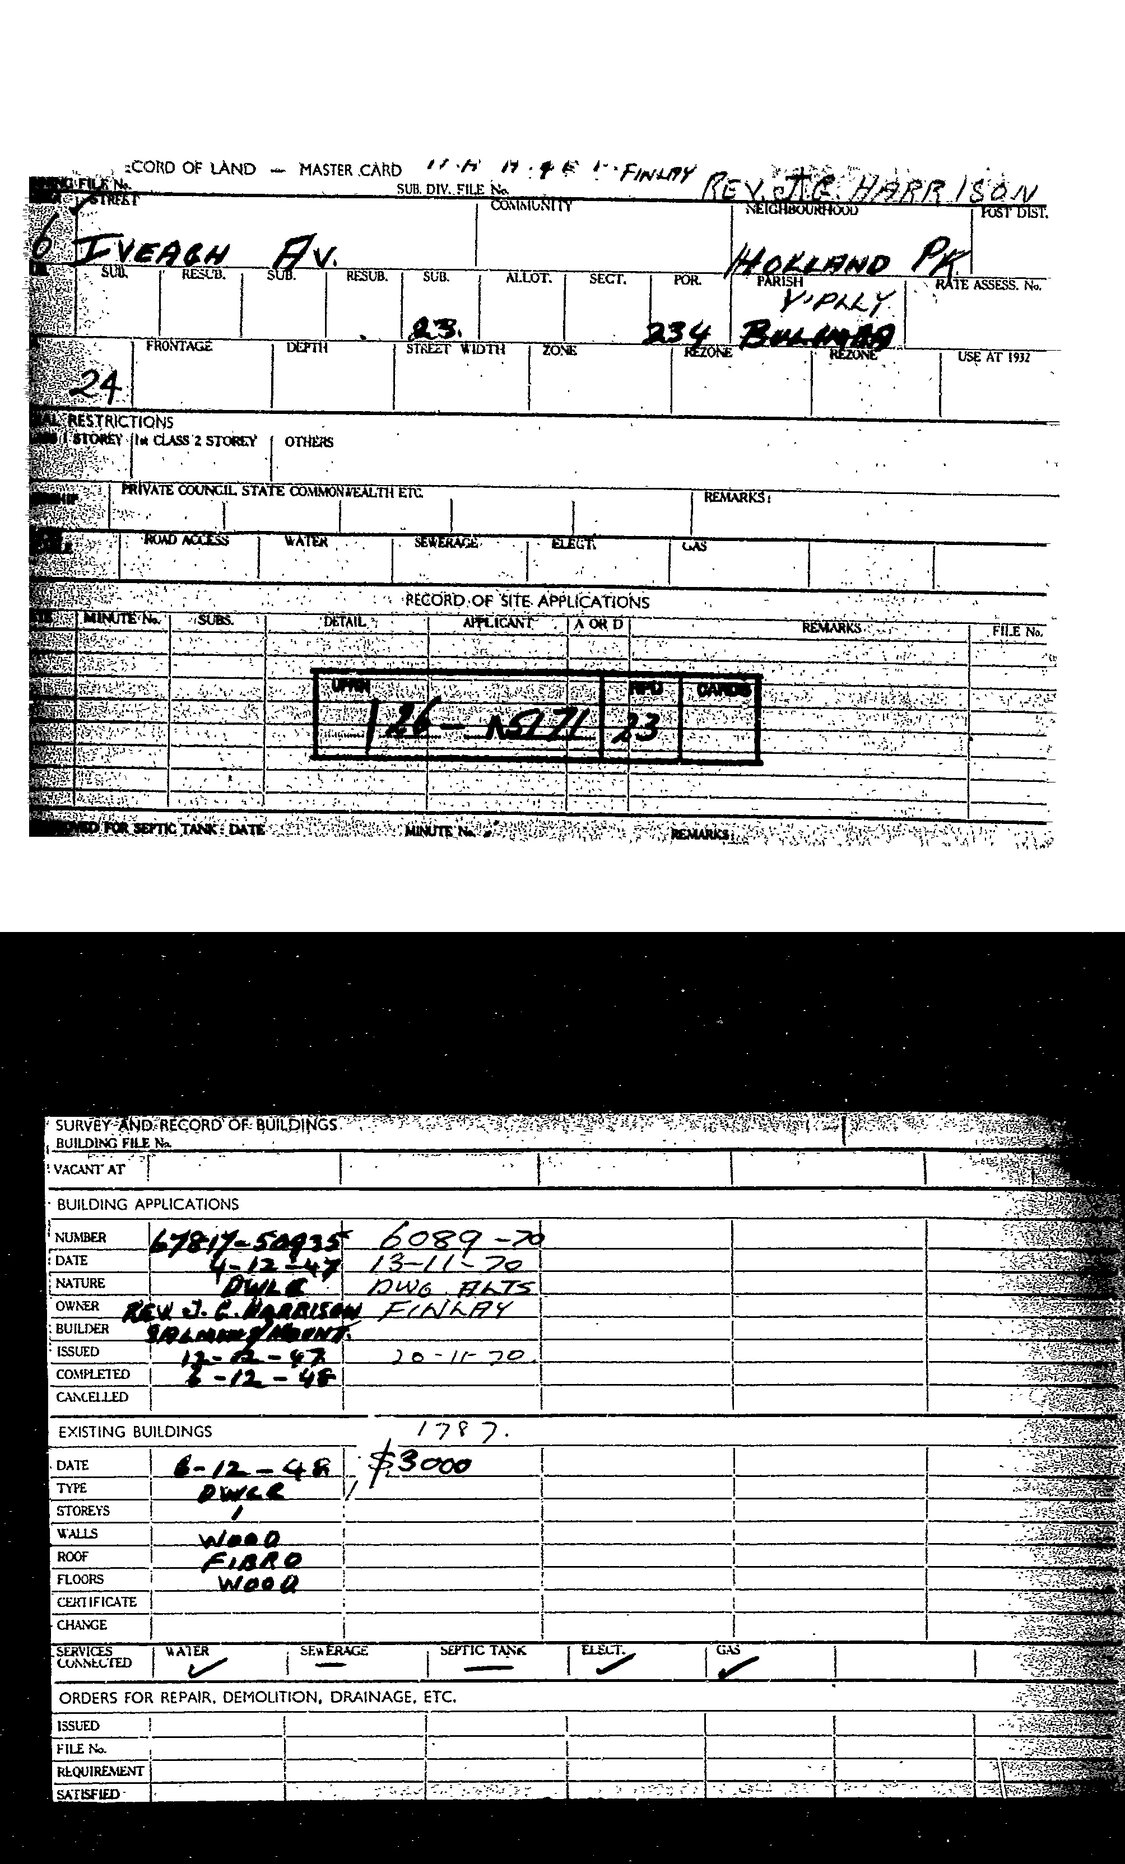 CORD OF LAND — MASTER CARD FINLAY REV. J.C. HARRISON
FILE No. SUB. DIV. FILE No.
STREET COMMUNITY NEIGHBOURHOOD POST DIST.
6 IVEAGH AV. HOLLAND PK
SUB. RESUB. SUB. RESUB. SUB. ALLOT. SECT. POR. PARISH RATE ASSESS. No.
Y'PLLY
23. 234 BULIMBA
FRONTAGE DEPTH STREET WIDTH ZONE REZONE REZONE USE AT 1932
24
RESTRICTIONS
1 STOREY 1st CLASS 2 STOREY OTHERS
PRIVATE COUNCIL STATE COMMONWEALTH ETC. REMARKS:
ROAD ACCESS WATER SEWERAGE ELECT. GAS
RECORD OF SITE APPLICATIONS
MINUTE No. SUBS. DETAIL APPLICANT A OR D REMARKS FILE No.
UPRN RPD CARDS
126 — 23
FOR SEPTIC TANK: DATE MINUTE No. REMARKS:
SURVEY AND RECORD OF BUILDINGS
BUILDING FILE No.
VACANT AT
BUILDING APPLICATIONS
NUMBER 67817-50935 6089-70
DATE 4-12-47 13-11-70
NATURE DWLG DWG ALTS
OWNER REV. J. C. HARRISON FINLAY
BUILDER
ISSUED 12-12-47 20-11-70.
COMPLETED 6-12-48
CANCELLED
EXISTING BUILDINGS 1787.
DATE 6-12-48 $3000
TYPE DWLG
STOREYS 1
WALLS WOOD
ROOF FIBRO
FLOORS WOOD
CERTIFICATE
CHANGE
SERVICES CONNECTED WATER ✓ SEWERAGE — SEPTIC TANK — ELECT. ✓ GAS ✓
ORDERS FOR REPAIR, DEMOLITION, DRAINAGE, ETC.
ISSUED
FILE No.
REQUIREMENT
SATISFIED